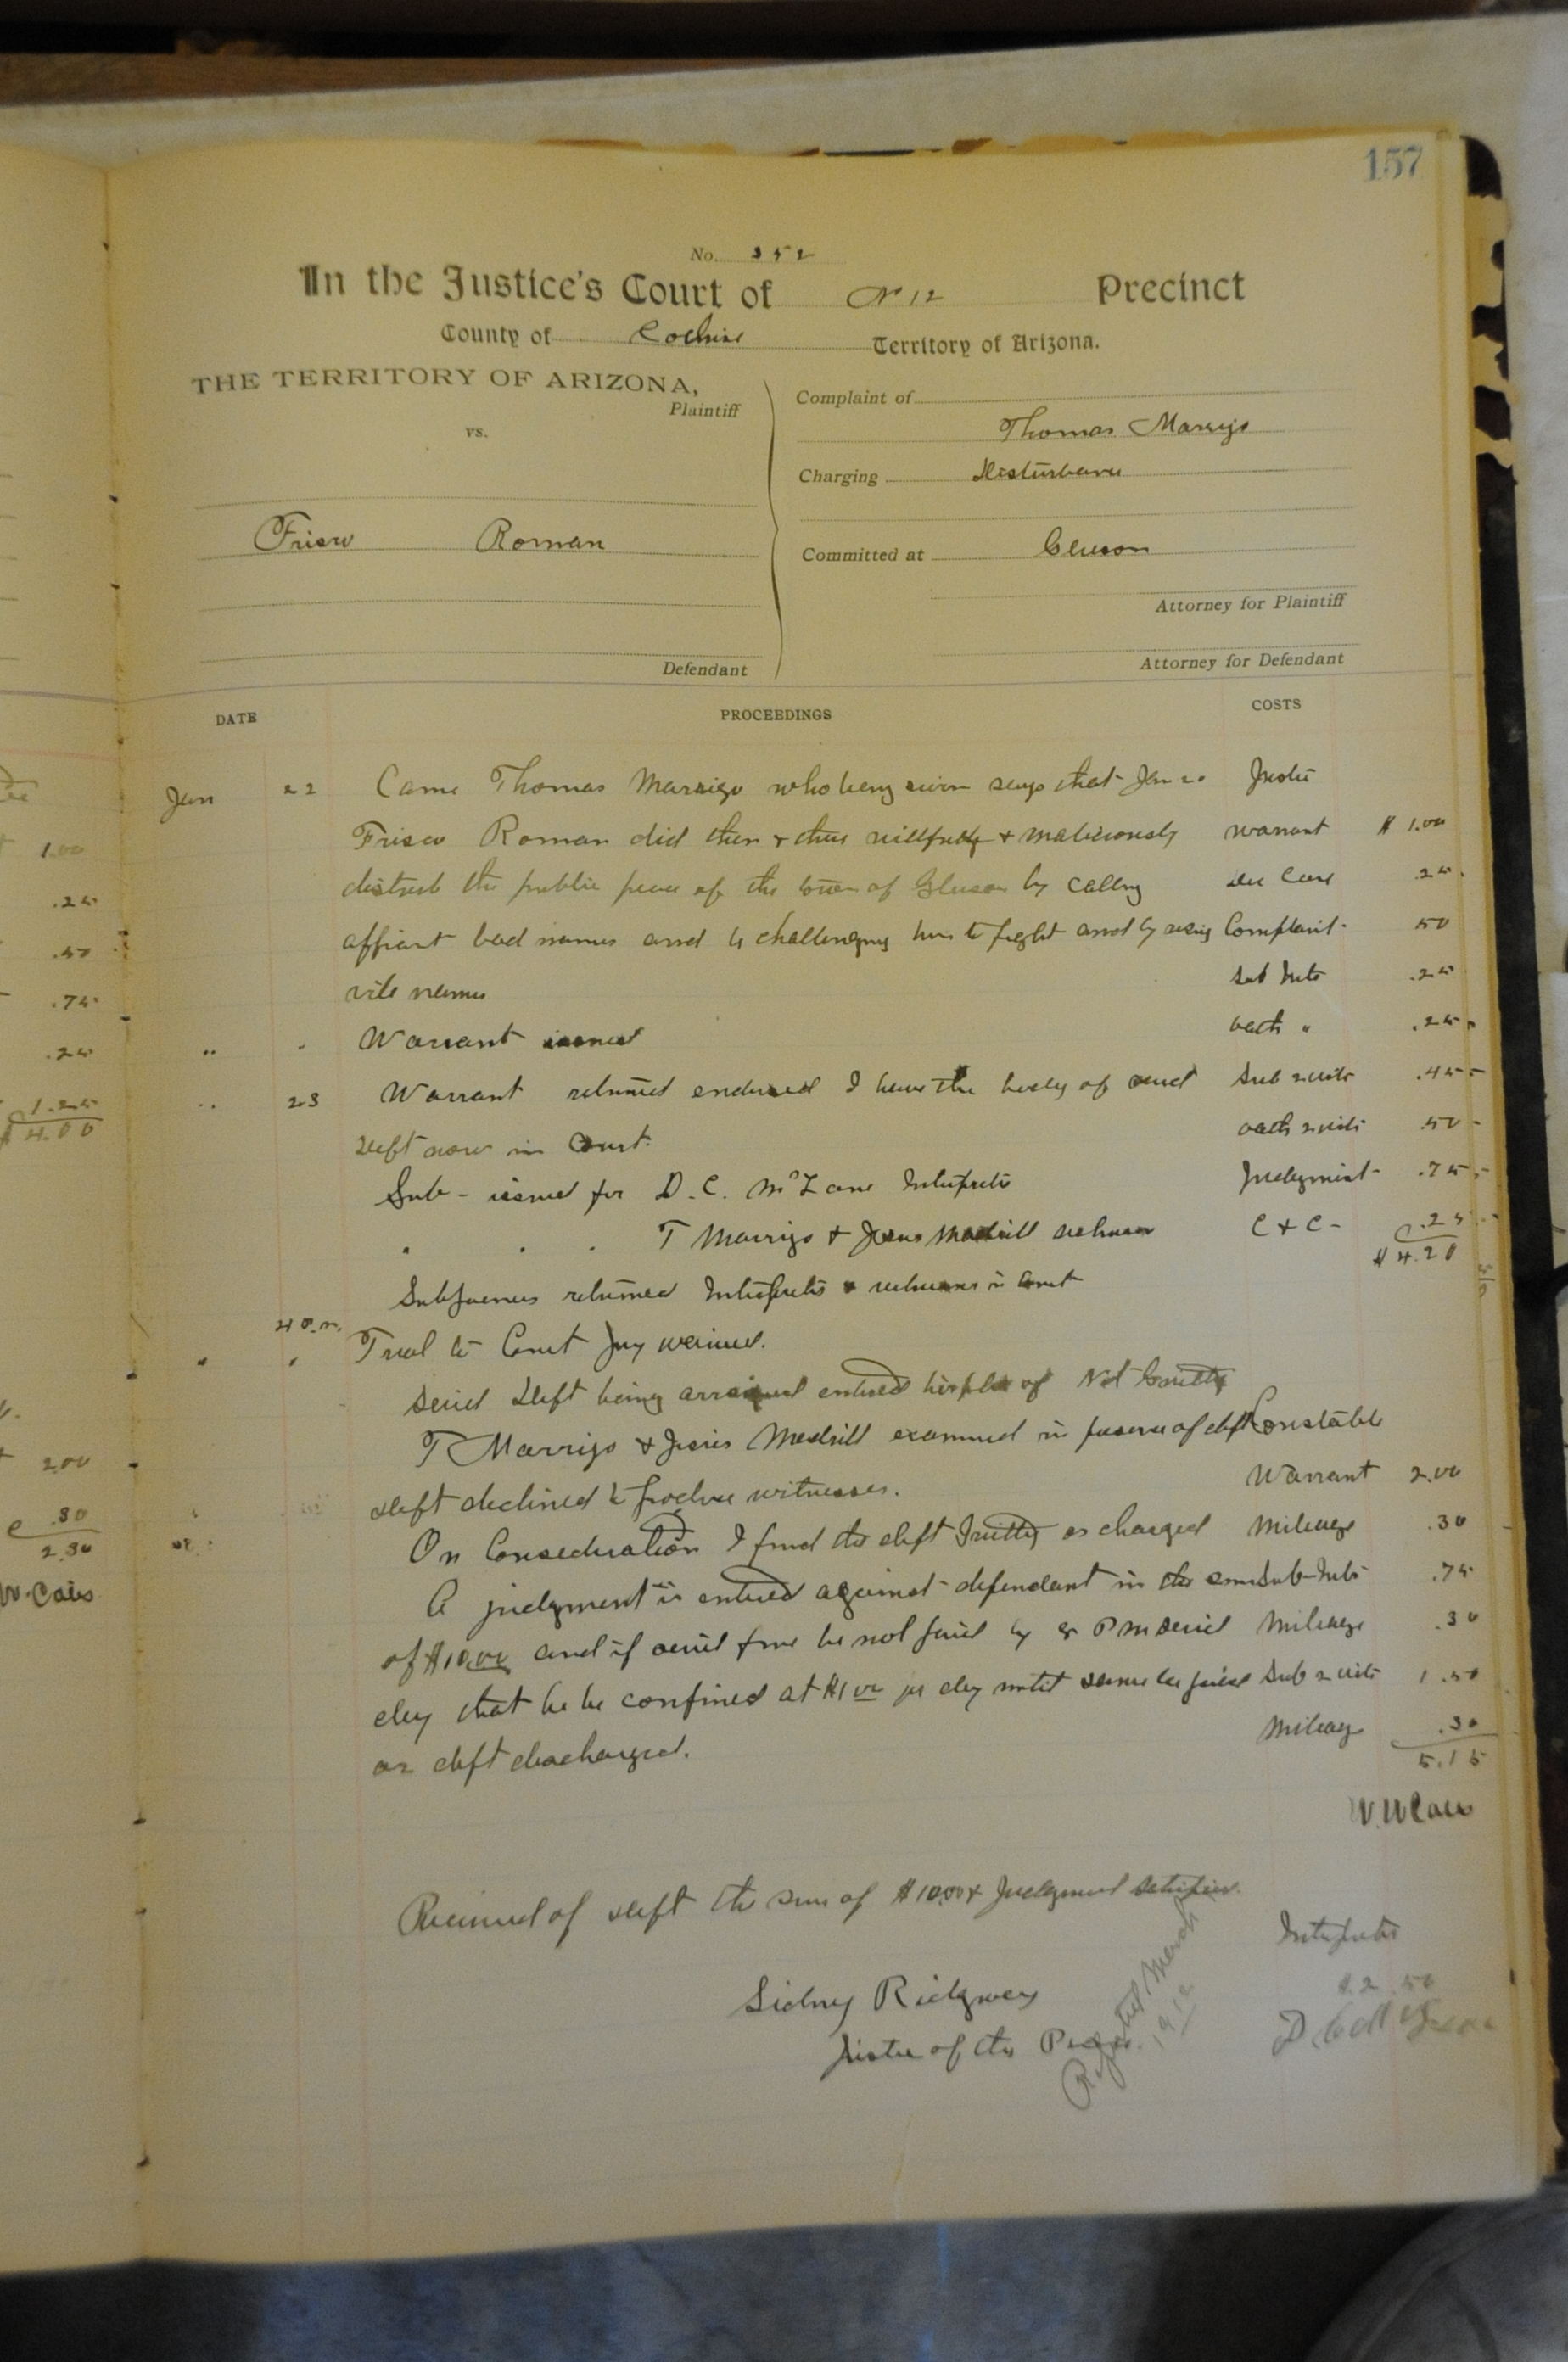 157
No. 352
In the Justice's Court of No 12 Precinct
County of Cochise Territory of Arizona.
THE TERRITORY OF ARIZONA,
Plaintiff
vs.
Frisco Roman
Defendant
Complaint of
Thomas Marrijo
Charging Disturbance
Committed at Gleeson
Attorney for Plaintiff
Attorney for Defendant
DATE PROCEEDINGS COSTS
Jan 22 Came Thomas Marrijo who being sworn says that Jan 20 Justice
Frisco Roman did then & there willfully & maliciously warrant $1.00
disturb the public peace of the town of Gleeson by calling Doc Case .25
affiant bad names and by challenging him to fight and by using Complaint 50
vile names Sub Intr .25
" " Warrant issued oath " .25
" 23 Warrant returned endorsed I have the body of said Sub 2 wits .45
Deft now in Court. oath 2 wits .50
Sub - issued for D. C. McLane Interpreter Judgment .75
" " " T Marrijo & Jesus Madrill witnesses C & C - .25
$4.20
Subpoenas returned Interpreter & witnesses in Court
4 P.m.
" " Trial to Court Jury waived.
Said Deft being arraigned entered his plea of Not Guilty
T Marrijo & Jesus Madrill examined in presence of deft Constable
Deft declined to produce witnesses. Warrant 2.00
On Consideration I find the deft Guilty as charged Mileage .30
A judgment is entered against defendant in the sum Sub-Intr .75
of $10.00 and if said fine be not paid by 8 P m said Mileage .30
day that he be confined at $1.00 per day until same be paid Sub 2 wits 1.50
or deft discharged. Mileage .30
5.15
W.W Cain
Received of Deft the sum of $10.00 & Judgment satisfied.
Sidney Ridgway
Justice of the Peace.
Reported March
1912
Interpreter
$2.50
1.00
.25
.75
.25
1.25
$4.00
2.00
.30
2.30
W. Cain